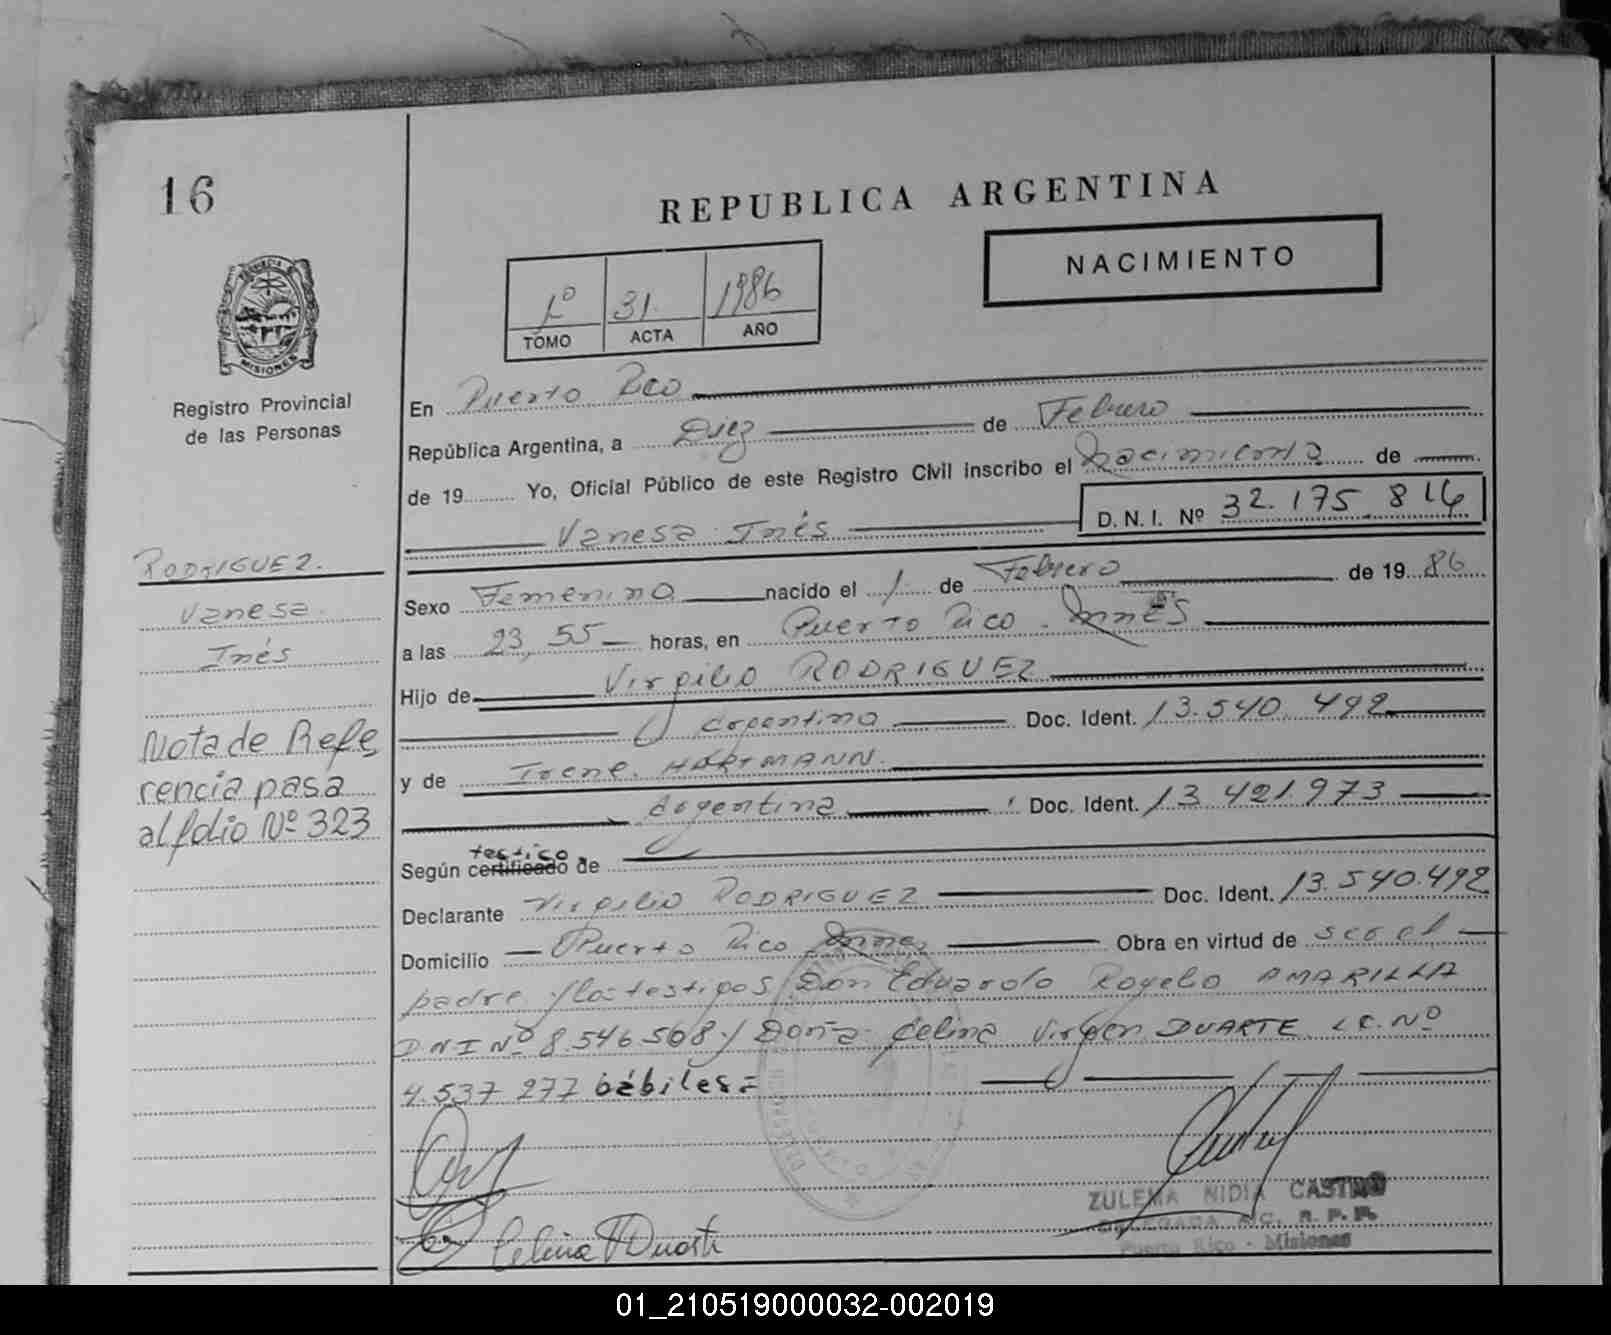 16
REPUBLICA ARGENTINA
NACIMIENTO
1º 31. 1986
TOMO ACTA AÑO
PROVINCIA DE
MISIONES
Registro Provincial
de las Personas
En Puerto Rico
República Argentina, a Diez de Febrero
de 19 Yo, Oficial Público de este Registro Civil inscribo el Nacimiento de
D. N. I. Nº 32.175.816
Vanesa Inés
RODRIGUEZ.
Vanesa
Inés
Nota de Refe
rencia pasa
al folio Nº 323
Sexo Femenino nacido el 1 de Febrero de 19 86
a las 23,55 horas, en Puerto Rico. Mnes
Hijo de Virgilio RODRIGUEZ
argentino Doc. Ident. 13.540.492
y de Irene HARTMANN
argentina Doc. Ident. 13.421.973
testigo
Según certificado de
Declarante Virgilio RODRIGUEZ Doc. Ident. 13.540.492
Domicilio Puerto Rico Mnes Obra en virtud de ser el
padre y los testigos Don Eduardo Rogelio AMARILLA
DNI Nº 8.546.508 y Doña Celina Virgen DUARTE L.C. Nº
4.537.277 hábiles=
Celina V Duarte
ZULEMA NIDIA CASTRO
DELEGADA R.P.P.
Puerto Rico - Misiones
01_210519000032-002019